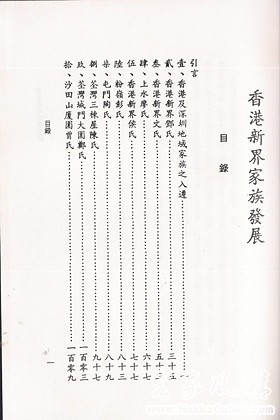 香港新界家族發展
目錄
引言
壹、香港及深圳地域家族之入遷……一
貳、香港新界鄧氏……三十五
叁、香港新界文氏……五十三
肆、上水廖氏……六十七
伍、香港新界侯氏……七十七
陸、粉嶺彭氏……八十三
柒、屯門陶氏……八十九
捌、荃灣三棟屋陳氏……九十七
玖、荃灣城門大圍鄭氏……一百零三
拾、沙田山厦圍曾氏……一百零九
目錄
一